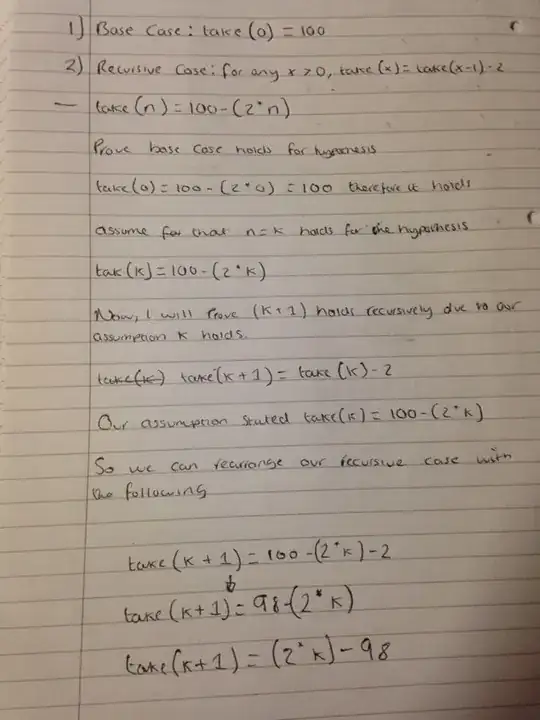 1) Base Case: take(0) = 100
2) Recursive Case: for any x > 0, take(x) = take(x-1)-2
— take(n) = 100 - (2*n)
Prove base case holds for hypothesis
take(0) = 100 - (2*0) = 100 therefore it holds
assume for that n=k holds for the hypothesis
tak(k) = 100 - (2*k)
Now, I will Prove (k+1) holds recursively due to our
assumption k holds.
take(k) take(k+1) = take(k)-2
Our assumption stated take(k) = 100 - (2*k)
So we can rearrange our recursive case with
the following
take(k+1) = 100 - (2*k) - 2
↓
take(k+1) = 98 - (2*k)
take(k+1) = (2*k) - 98